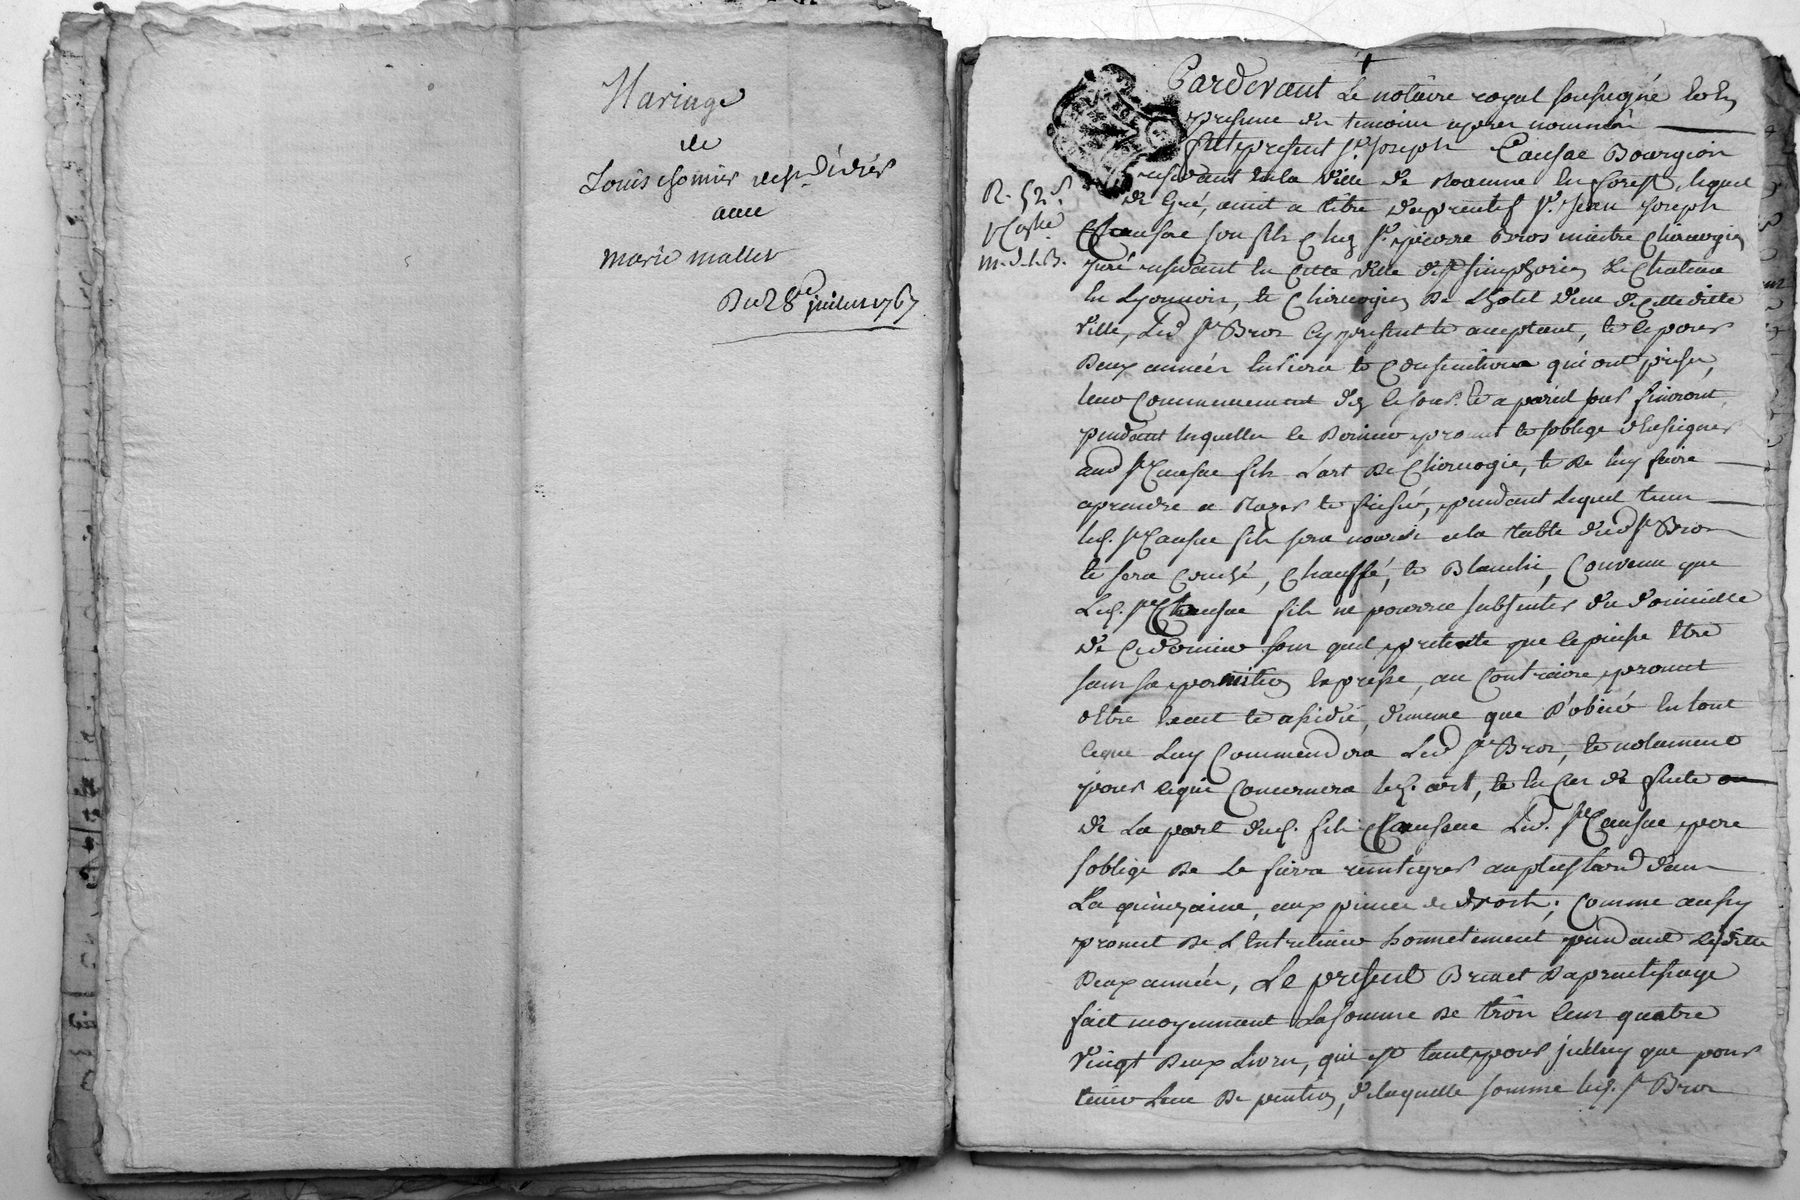 Mariage
de
Louis
avec
Marie mallet
Du 28e juillet 1767
R. 52 s
m. d. l. B.
Pardevant Le notaire royal soussigné et En
presence des temoins apres nommés
fut present Sr. Joseph Causse Bourgeois
residant en la ville de Roanne en forest, lequel
de Gré, a mit a titre d'aprentif Sr. Jean Joseph
Chausse son fils Chez Sr. pierre Bros maitre Chirurgien
juré residant en Cette ville de St simphorien Le Chateau
en Lyonnois, et Chirurgien De L'hotel dieu de Cette ditte
ville, Led. Sr Bros Cy present et acceptant, et ce pour
Deux années Entiere et Consecutives qui ont prises
leur Commencement dez Ce jour et a pareil jour finiront,
pendant lesquelles le Dernier promet et soblige d'Enseigner
aud Sr Causse fils L'art De Chirurgie, et De luy faire
aprendre a Razer et friser, pendant lequel tems
led. Sr Causse fils sera nourri a la table dud Sr Bros
et sera Couché, Chauffé, et Blanchi, Convenu que
Led. Sr Chausse fils ne pourra sabsenter du domicille
de Ce dernier sous quel pretexte que ce puisse Etre
sans sa permition Expresse, au Contraire promet
d'Etre Exact et assidu, de meme que D'obéir En tout
ce que Luy Commendera Led Sr Bros, et notament
pour ce qui Concernera led. art, et En Cas de fuite
de La part dud. fils Chaussae Led. Sr Causse pere
soblige De Le faire reintegrer au plus tard dans
La quinzaine, aux peines de droit; Comme aussy
promet De L'Entretenir honnetement pendant lesdittes
Deux années, Le present Brevet D'aprentissage
fait moyennant La somme De trois Cens quatre
vingt Deux Livres, qui est tant pour que pour
tenir Lieu De pention, de laquelle somme led. Sr Bros